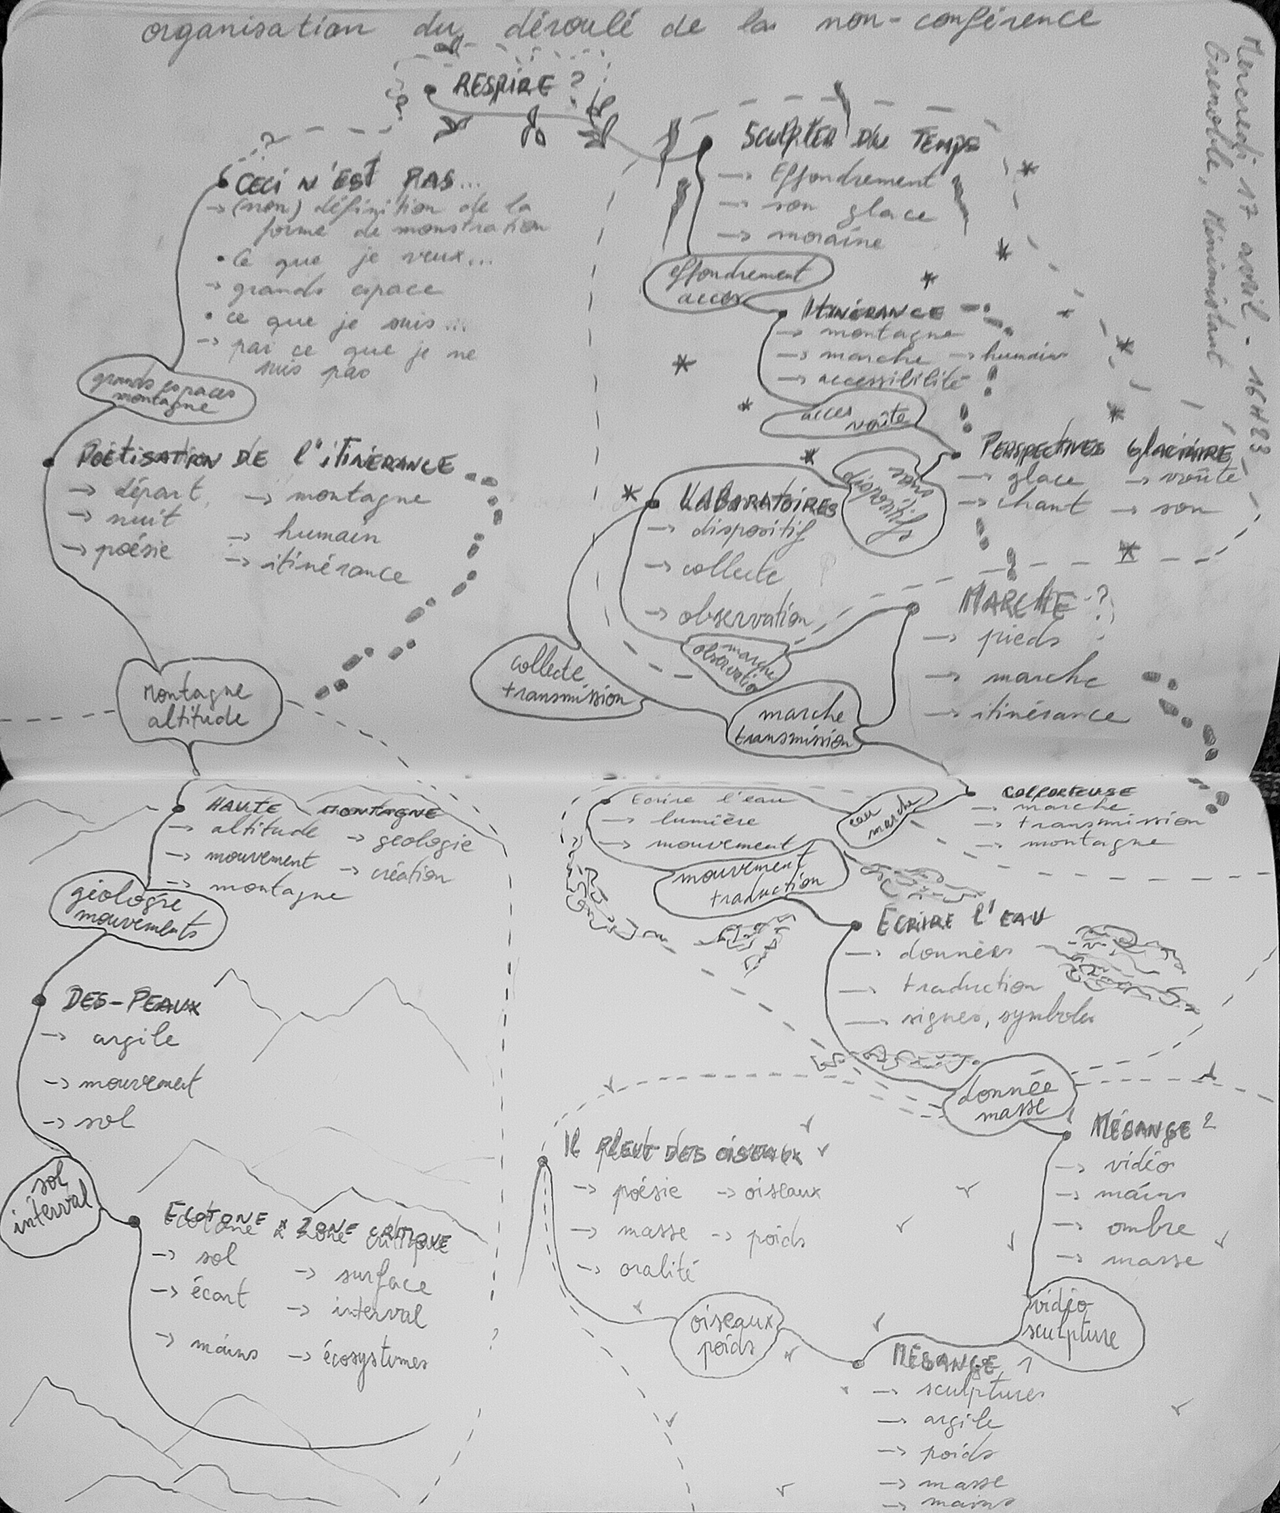 organisation du déroulé de la non-conférence
Mercredi 17 avril - 16H23
Grenoble, Minimistant
RESPIRE ?
CECI N'EST PAS...
→ (non) définition de la
forme de monstration
• Ce que je veux...
→ grands espace
• ce que je suis...
→ par ce que je ne
suis pas
grands espaces
montagne
POÉTISATION DE l'ITINÉRANCE
→ départ → montagne
→ nuit → humain
→ poésie → itinérance
Montagne
altitude
HAUTE MONTAGNE
→ altitude → géologie
→ mouvement → création
→ montagne
géologie
mouvements
DES-PEAUX
→ argile
→ mouvement
→ sol
sol
interval
ECOTONE x ZONE CRITIQUE
→ sol → surface
→ écart → interval
→ mains → écosystèmes
SCULPTER DU TEMPS
→ Effondrement
→ son glace
→ moraine
effondrement
acces
ITINÉRANCE
→ montagne
→ marche → humain
→ accessibilité
acces
voûte
PERSPECTIVES GLACIAIRE
→ glace → voûte
→ chant → son
sons
dispositifs
LABORATOIRES
→ dispositif
→ collecte
→ observation
marche
observation
collecte
transmission
MARCHE ?
→ pieds
→ marche
→ itinérance
marche
transmission
COLPORTEUSE
→ marche
→ transmission
→ montagne
eau
marche
Ecrire l'eau
→ lumière
→ mouvement
mouvement
traduction
ECRIRE l'EAU
→ données
→ traduction
→ signes, symboles
donnée
masse
MÉSANGE 2
→ vidéo
→ mains
→ ombre
→ masse
vidéo
sculpture
MÉSANGE 1
→ sculptures
→ argile
→ poids
→ masse
→ mains
oiseaux
poids
IL PLEUT DES OISEAUX
→ poésie → oiseaux
→ masse → poids
→ oralité